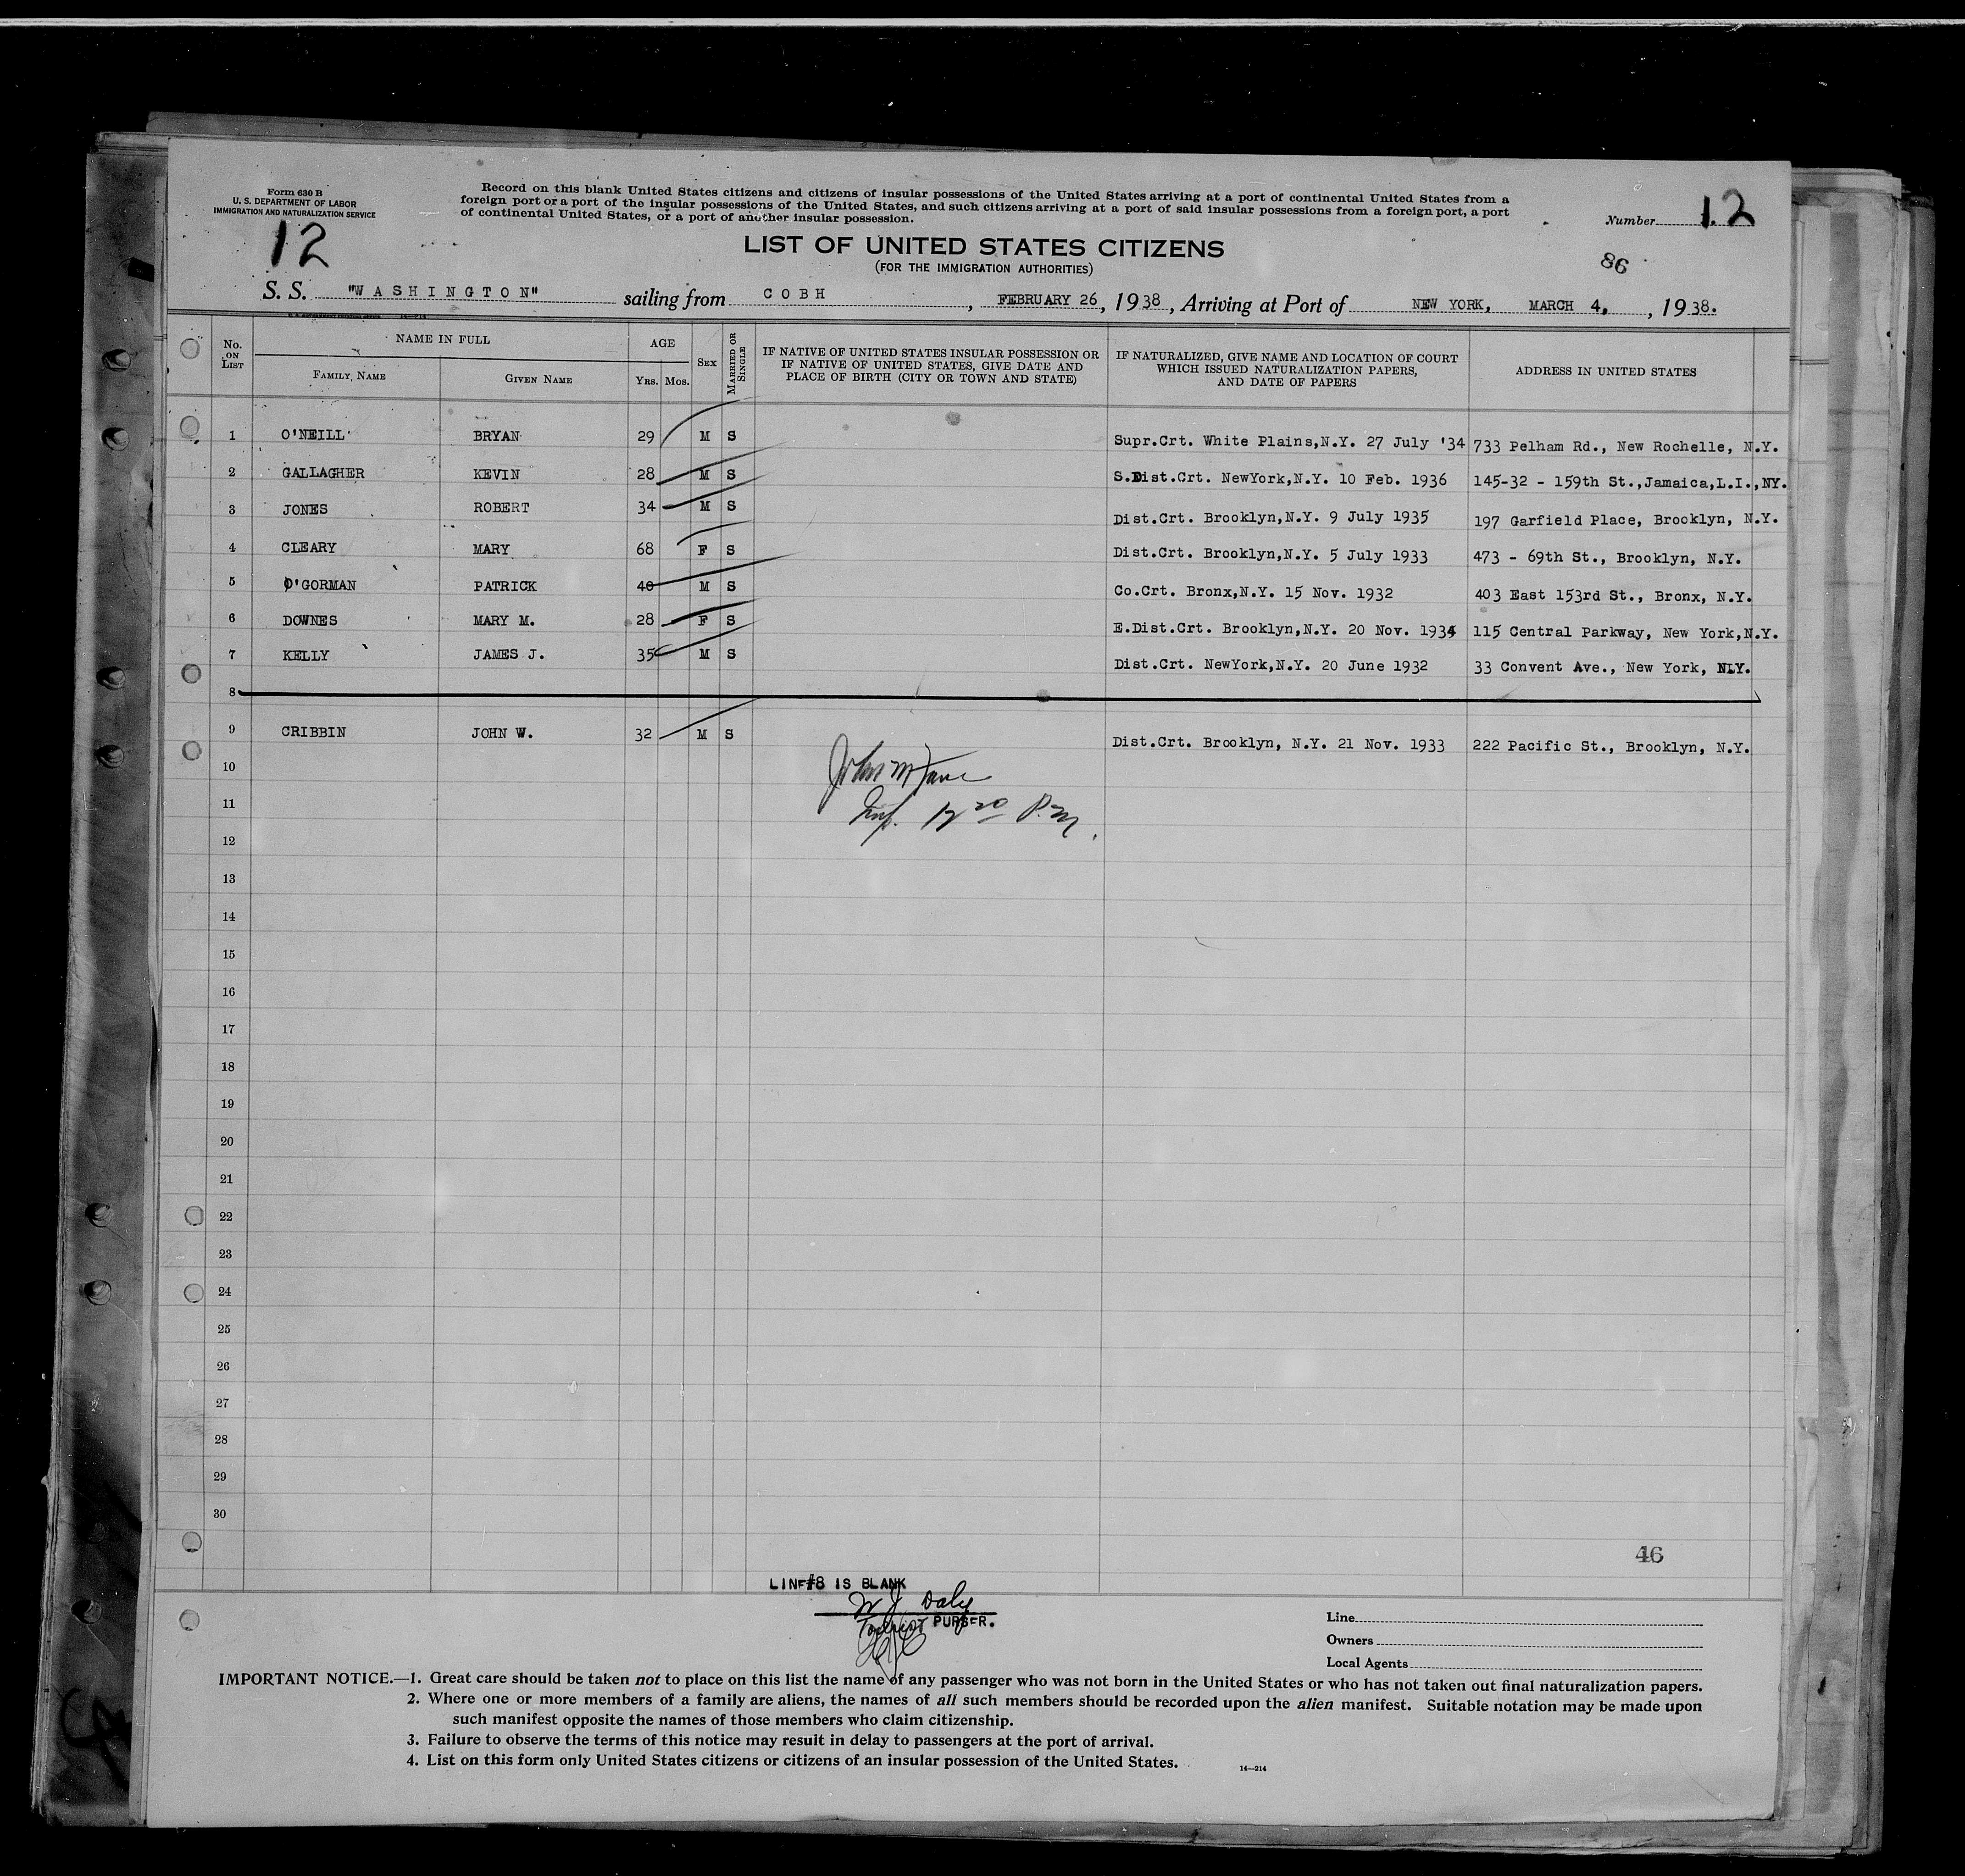 Form 630 B
U. S. DEPARTMENT OF LABOR
IMMIGRATION AND NATURALIZATION SERVICE
Record on this blank United States citizens and citizens of insular possessions of the United States arriving at a port of continental United States from a
foreign port or a port of the insular possessions of the United States, and such citizens arriving at a port of said insular possessions from a foreign port, a port
of continental United States, or a port of another insular possession.
Number 12
12
LIST OF UNITED STATES CITIZENS
(FOR THE IMMIGRATION AUTHORITIES)
86
S. S. "WASHINGTON" sailing from COBH, FEBRUARY 26, 1938, Arriving at Port of NEW YORK, MARCH 4, , 1938.
No. ON LIST
NAME IN FULL
FAMILY NAME
GIVEN NAME
AGE
YRS. MOS.
SEX
MARRIED OR SINGLE
IF NATIVE OF UNITED STATES INSULAR POSSESSION OR
IF NATIVE OF UNITED STATES, GIVE DATE AND
PLACE OF BIRTH (CITY OR TOWN AND STATE)
IF NATURALIZED, GIVE NAME AND LOCATION OF COURT
WHICH ISSUED NATURALIZATION PAPERS,
AND DATE OF PAPERS
ADDRESS IN UNITED STATES
1 O'NEILL BRYAN 29 M S Supr.Crt. White Plains,N.Y. 27 July '34 733 Pelham Rd., New Rochelle, N.Y.
2 GALLAGHER KEVIN 28 M S S.Dist.Crt. NewYork,N.Y. 10 Feb. 1936 145-32 - 159th St.,Jamaica,L.I.,NY.
3 JONES ROBERT 34 M S Dist.Crt. Brooklyn,N.Y. 9 July 1935 197 Garfield Place, Brooklyn, N.Y.
4 CLEARY MARY 68 F S Dist.Crt. Brooklyn,N.Y. 5 July 1933 473 - 69th St., Brooklyn, N.Y.
5 O'GORMAN PATRICK 40 M S Co.Crt. Bronx,N.Y. 15 Nov. 1932 403 East 153rd St., Bronx, N.Y.
6 DOWNES MARY M. 28 F S E.Dist.Crt. Brooklyn,N.Y. 20 Nov. 1934 115 Central Parkway, New York,N.Y.
7 KELLY JAMES J. 35 M S Dist.Crt. NewYork,N.Y. 20 June 1932 33 Convent Ave., New York, N.Y.
8
9 CRIBBIN JOHN W. 32 M S Dist.Crt. Brooklyn, N.Y. 21 Nov. 1933 222 Pacific St., Brooklyn, N.Y.
John
10
11
12 20 P.M.
12
13
14
15
16
17
18
19
20
21
22
23
24
25
26
27
28
29
30
46
LINE#8 IS BLANK
W J Daly
PURSER.
Line
Owners
Local Agents
IMPORTANT NOTICE.—1. Great care should be taken not to place on this list the name of any passenger who was not born in the United States or who has not taken out final naturalization papers.
2. Where one or more members of a family are aliens, the names of all such members should be recorded upon the alien manifest. Suitable notation may be made upon
such manifest opposite the names of those members who claim citizenship.
3. Failure to observe the terms of this notice may result in delay to passengers at the port of arrival.
4. List on this form only United States citizens or citizens of an insular possession of the United States.
14—214